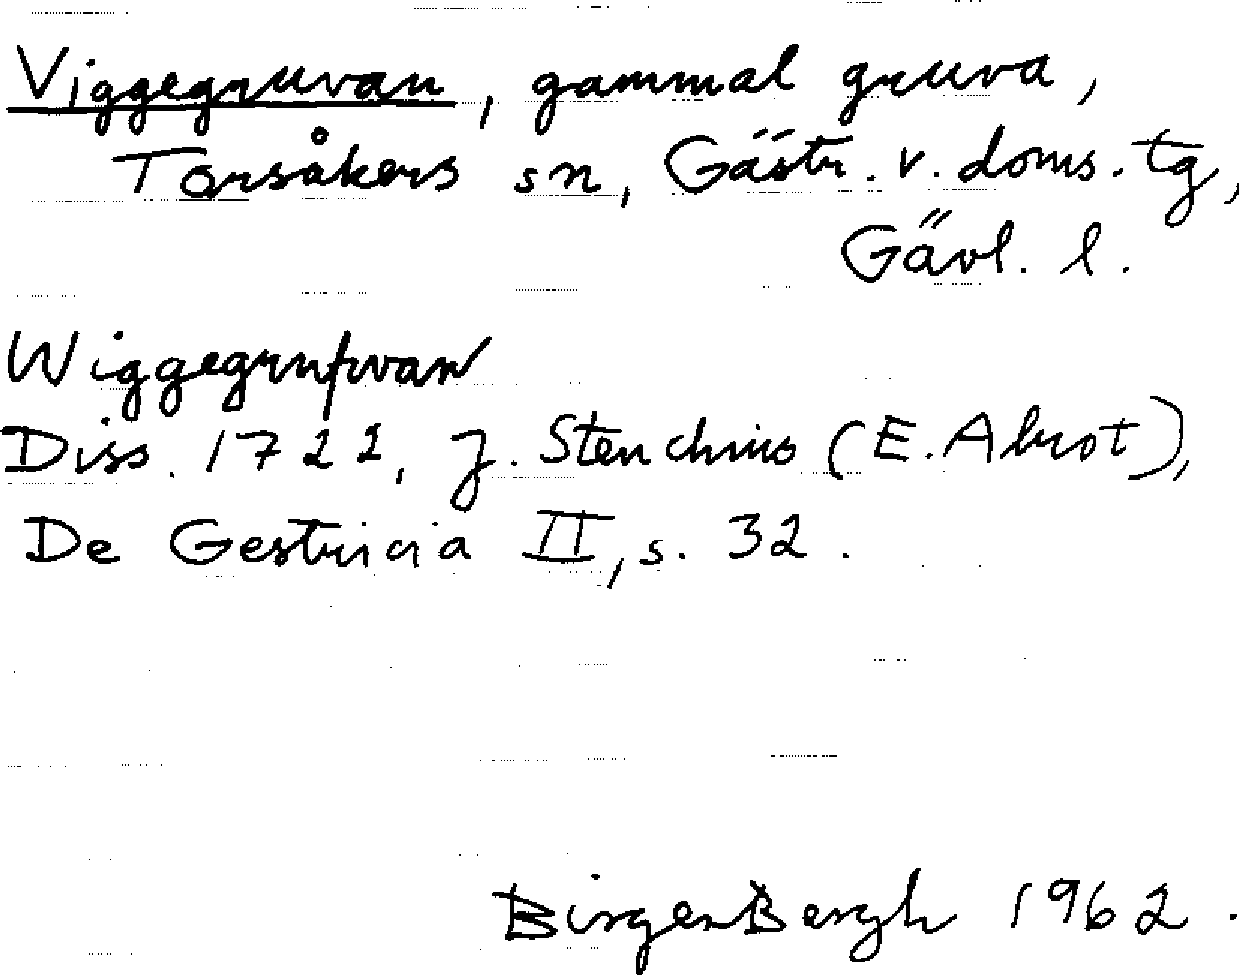 Viggegruvan, gammal gruva,
Torsåkers sn, Gästr. v. doms. tg,
Gävl. l.
Wiggegrufwan
Diss. 1722, J. Stenchius (E. Alrot),
De Gestricia II, s. 32.
Birger Bergh 1962.